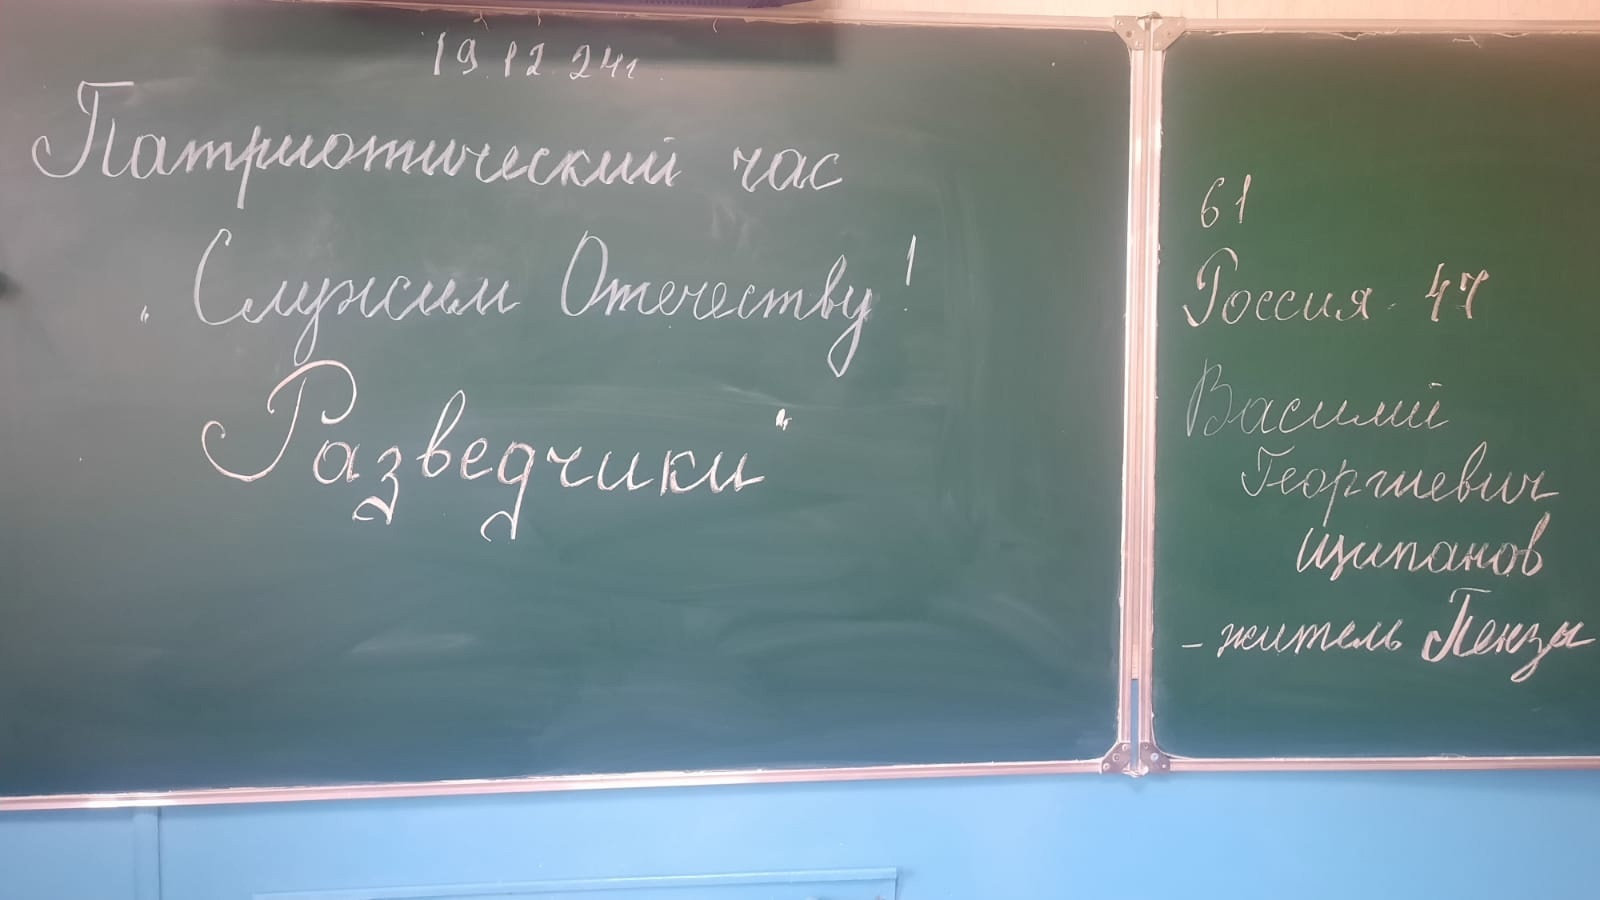 19.12.24г
Патриотический час
„Служим Отечеству!
Разведчики"
61
Россия - 47
Василий
Георгиевич
Щипанов
- житель Пензы